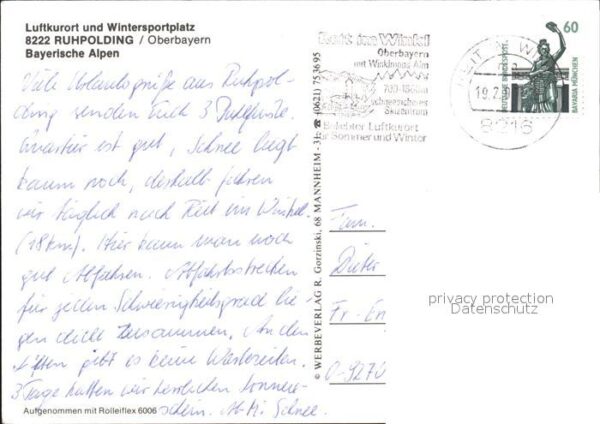 Luftkurort und Wintersportplatz
8222 RUHPOLDING / Oberbayern
Bayerische Alpen
Viele Urlaubsgrüße aus Ruhpol-
ding senden Euch 3
Quartier ist gut, Schnee liegt
kaum noch, deshalb fahren
wir täglich nach Reit im Winkel
(18 km). Hier kann man noch
gut Abfahren. Abfahrtsstrecken
für jeden Schwierigkeitsgrad lie-
gen dicht zusammen. An den
Liften gibt es keine Wartezeiten.
3 Tage hatten wir herrlichen Sonnen-
schein. Schnee.
Aufgenommen mit Rolleiflex 6006
© WERBEVERLAG R. Gorzinski, 68 MANNHEIM - 31, ☎ (0621) 753695
Reit im Winkl
Oberbayern
mit Winklmoos Alm
700-1800m
schneesicheres
Skizentrum
Beliebter Luftkurort
für Sommer und Winter
REIT W
19.2.9
8216
60
DEUTSCHE BUNDESPOST
BAVARIA MÜNCHEN
Fam.
Dieter
Fr.-En
O-9270
privacy protection
Datenschutz